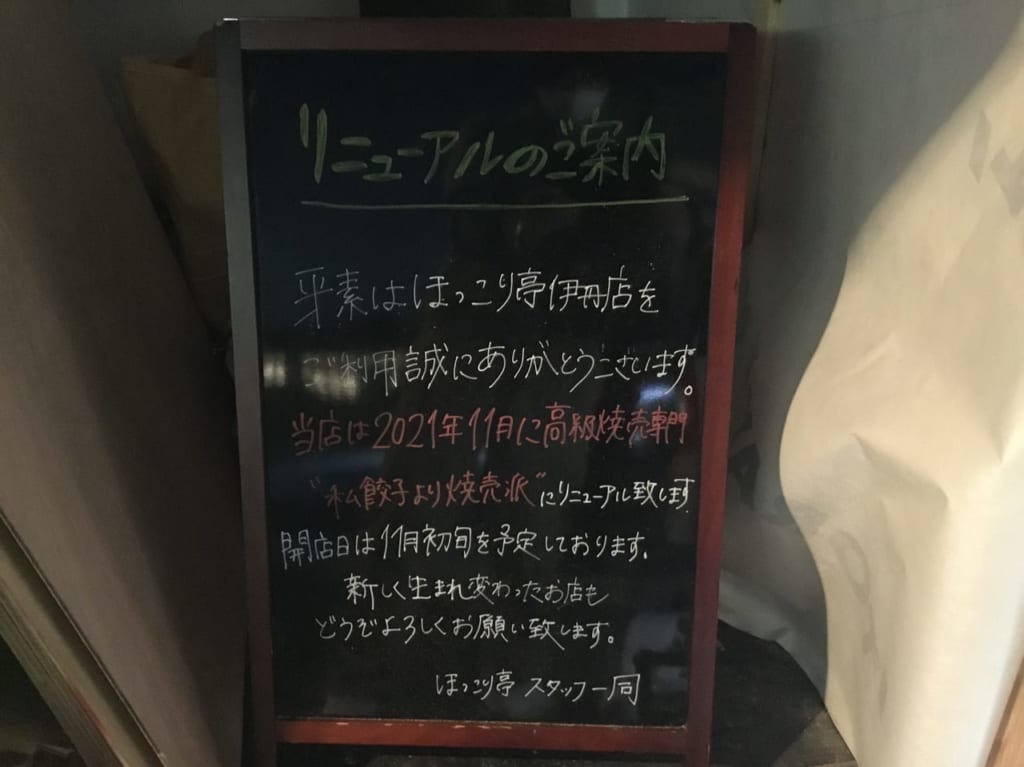 リニューアルのご案内
平素はほっこり亭伊丹店を
ご利用誠にありがとうございます。
当店は2021年11月に高級焼売専門
"私餃子より焼売派"にリニューアル致します
開店日は11月初旬を予定しております。
新しく生まれ変わったお店も
どうぞよろしくお願い致します。
ほっこり亭 スタッフ一同